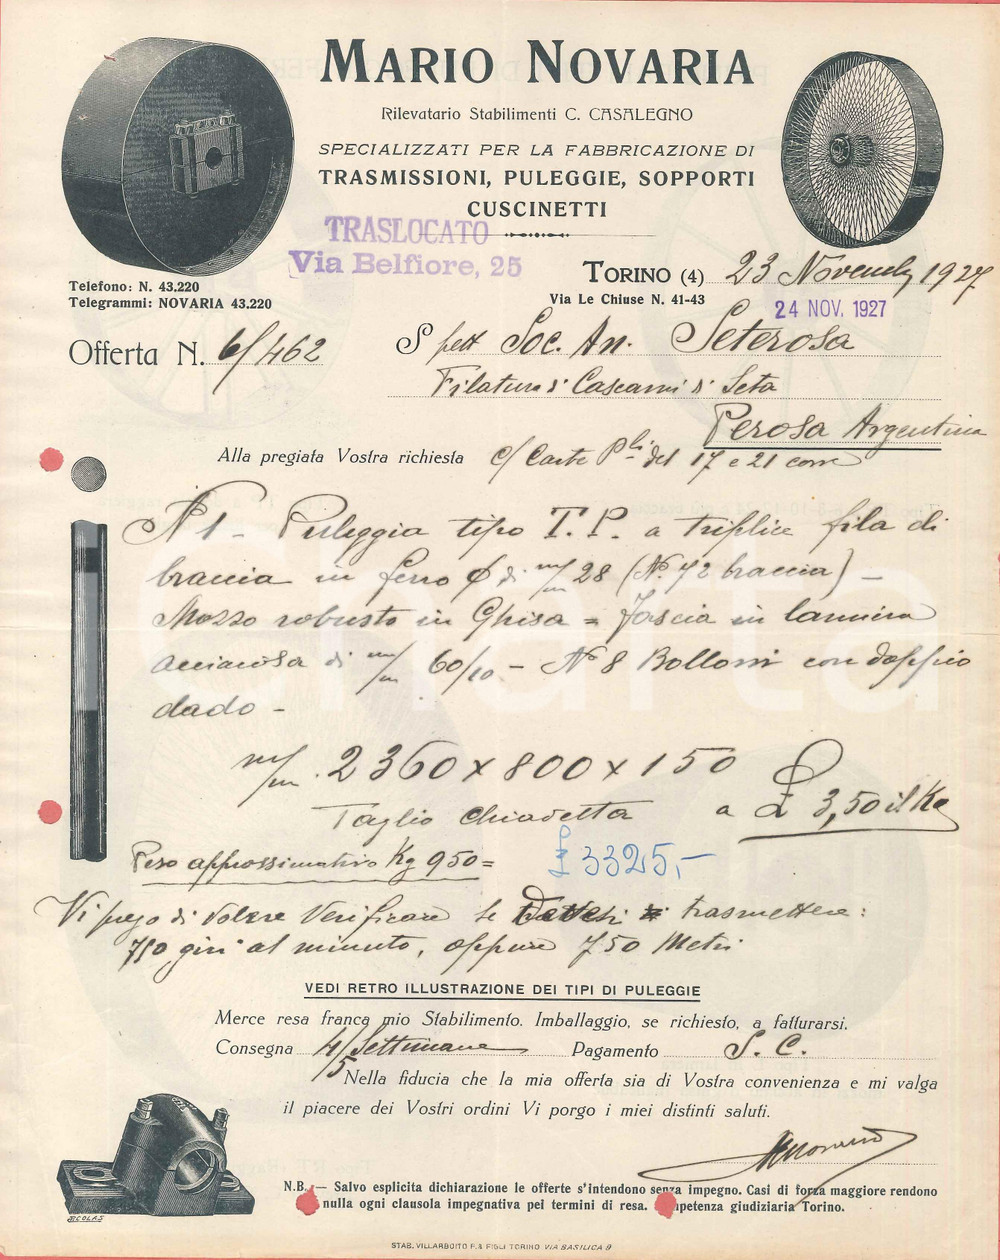 MARIO NOVARIA
Rilevatario Stabilimenti C. CASALEGNO
SPECIALIZZATI PER LA FABBRICAZIONE DI
TRASMISSIONI, PULEGGIE, SOPPORTI
CUSCINETTI
TRASLOCATO
Via Belfiore, 25
Telefono: N. 43.220
Telegrammi: NOVARIA 43.220
TORINO (4) 23 Novemb 1927
Via Le Chiuse N. 41-43
24 NOV. 1927
Offerta N. 6/462
Spett Soc. An. Seterosa
Filatura di Cascami di Seta
Perosa Argentina
Alla pregiata Vostra richiesta c/ Carte P.li del 17 e 21 corr
N° 1 - Puleggia tipo T. P. a triplice fila di
braccia in ferro Ø di m/m 28 (N. 72 braccia) -
Mozzo robusto in Ghisa = Fascia in lamiera
acciaiosa di m/m 60/10 - N° 8 Bolloni con doppio
dado -
m/m. 2360 x 800 x 150
Taglio chiavetta a £ 3,50 il Kg
Peso approssimativo Kg 950 =
£ 3325,-
Vi prego di volere Verificare se trasmettere:
750 giri al minuto, oppure 750 Metri
VEDI RETRO ILLUSTRAZIONE DEI TIPI DI PULEGGIE
Merce resa franca mio Stabilimento. Imballaggio, se richiesto, a fatturarsi.
Consegna 4/5 Settimane Pagamento S. C.
Nella fiducia che la mia offerta sia di Vostra convenienza e mi valga
il piacere dei Vostri ordini Vi porgo i miei distinti saluti.
N.B. — Salvo esplicita dichiarazione le offerte s'intendono senza impegno. Casi di forza maggiore rendono
nulla ogni clausola impegnativa pei termini di resa. mpetenza giudiziaria Torino.
STAB. VILLARBOITO F. & FIGLI TORINO VIA BASILICA 9
icharta